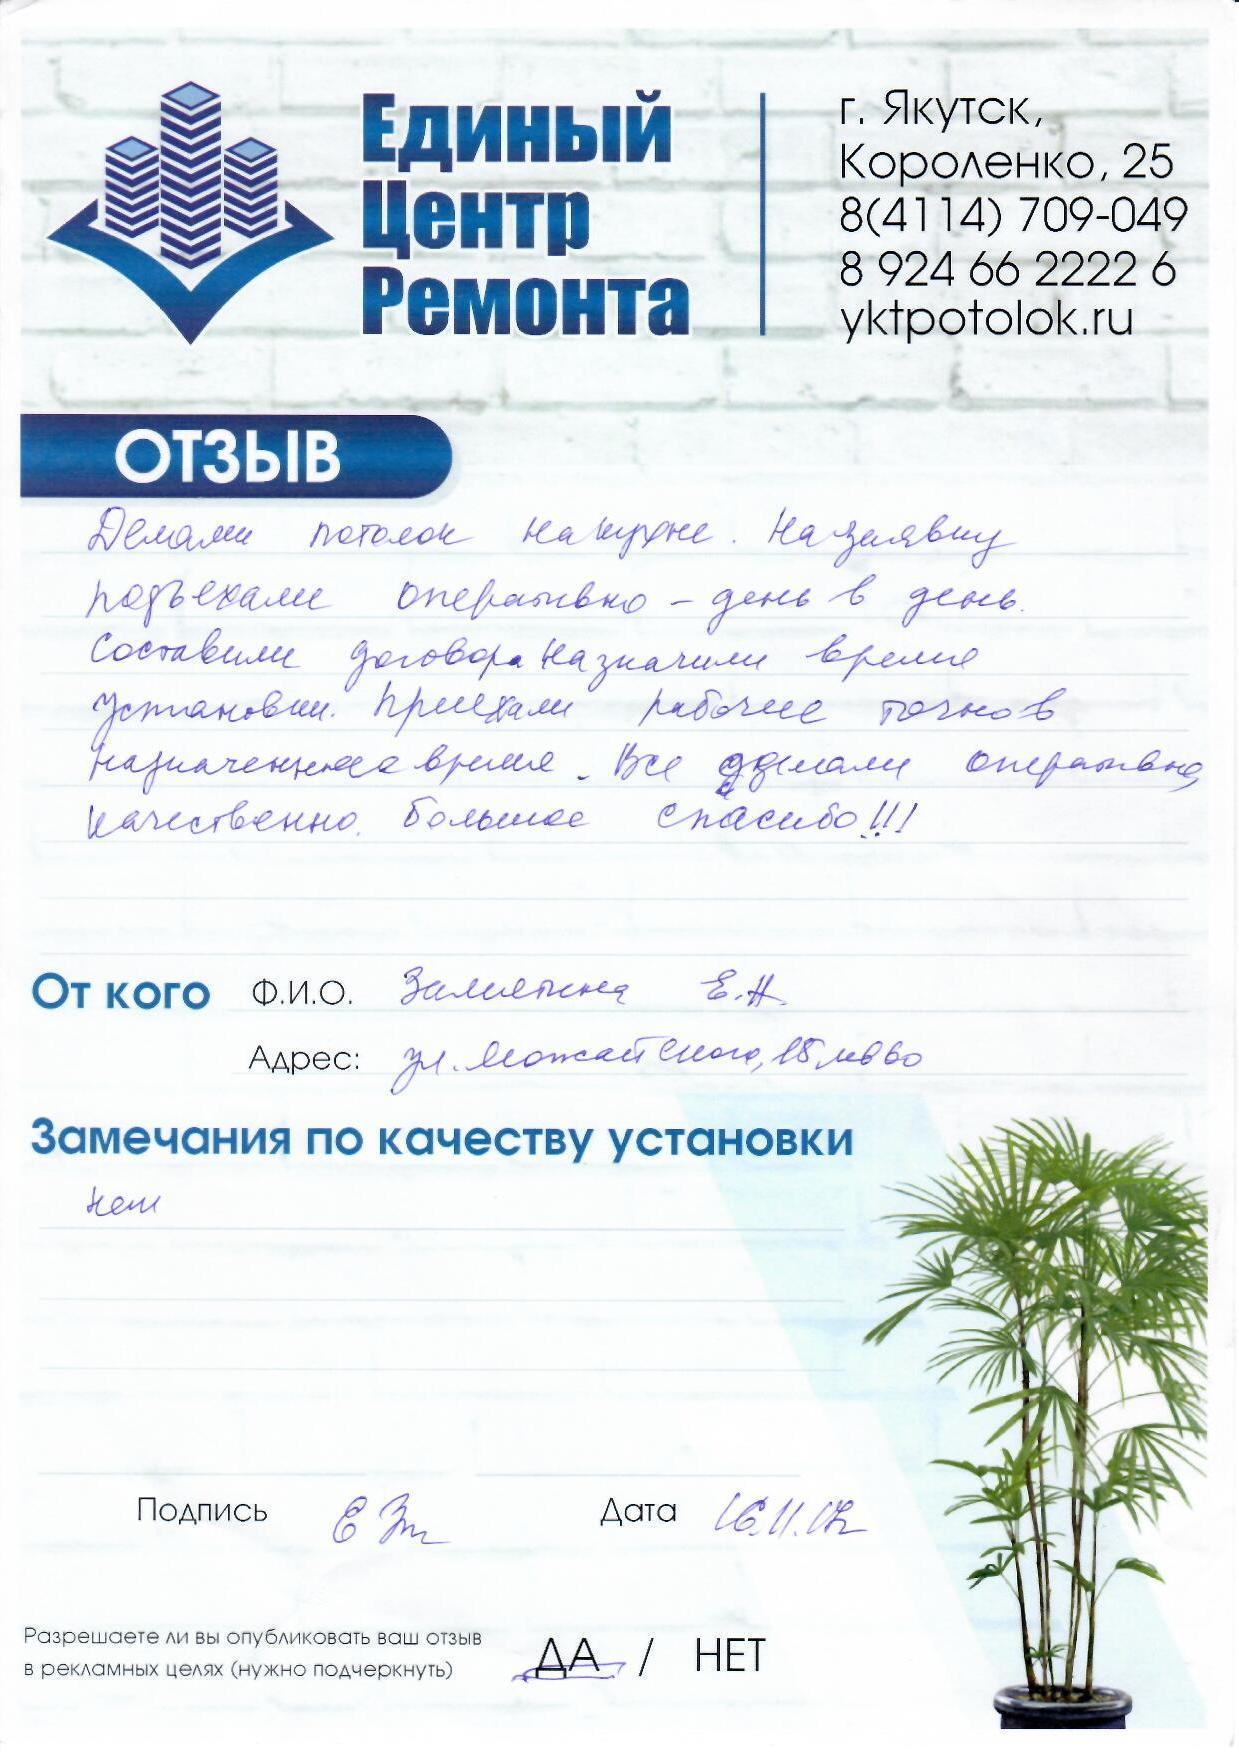 Единый
Центр
Ремонта
г. Якутск,
Короленко, 25
8(4114) 709-049
8 924 66 2222 6
yktpotolok.ru
ОТЗЫВ
Делали потолок на кухне. На заявку
подъехали оперативно - день в день.
Составили договора назначили время
установки. Приехали рабочие точно в
назначенное время. Все сделали оперативно,
качественно. Большое спасибо!!!
От кого Ф.И.О. Замятина Е.Н.
Адрес: ул. Можайского, 15
Замечания по качеству установки
нет
Подпись Дата 16.11.17
Разрешаете ли вы опубликовать ваш отзыв
в рекламных целях (нужно подчеркнуть) ДА / НЕТ